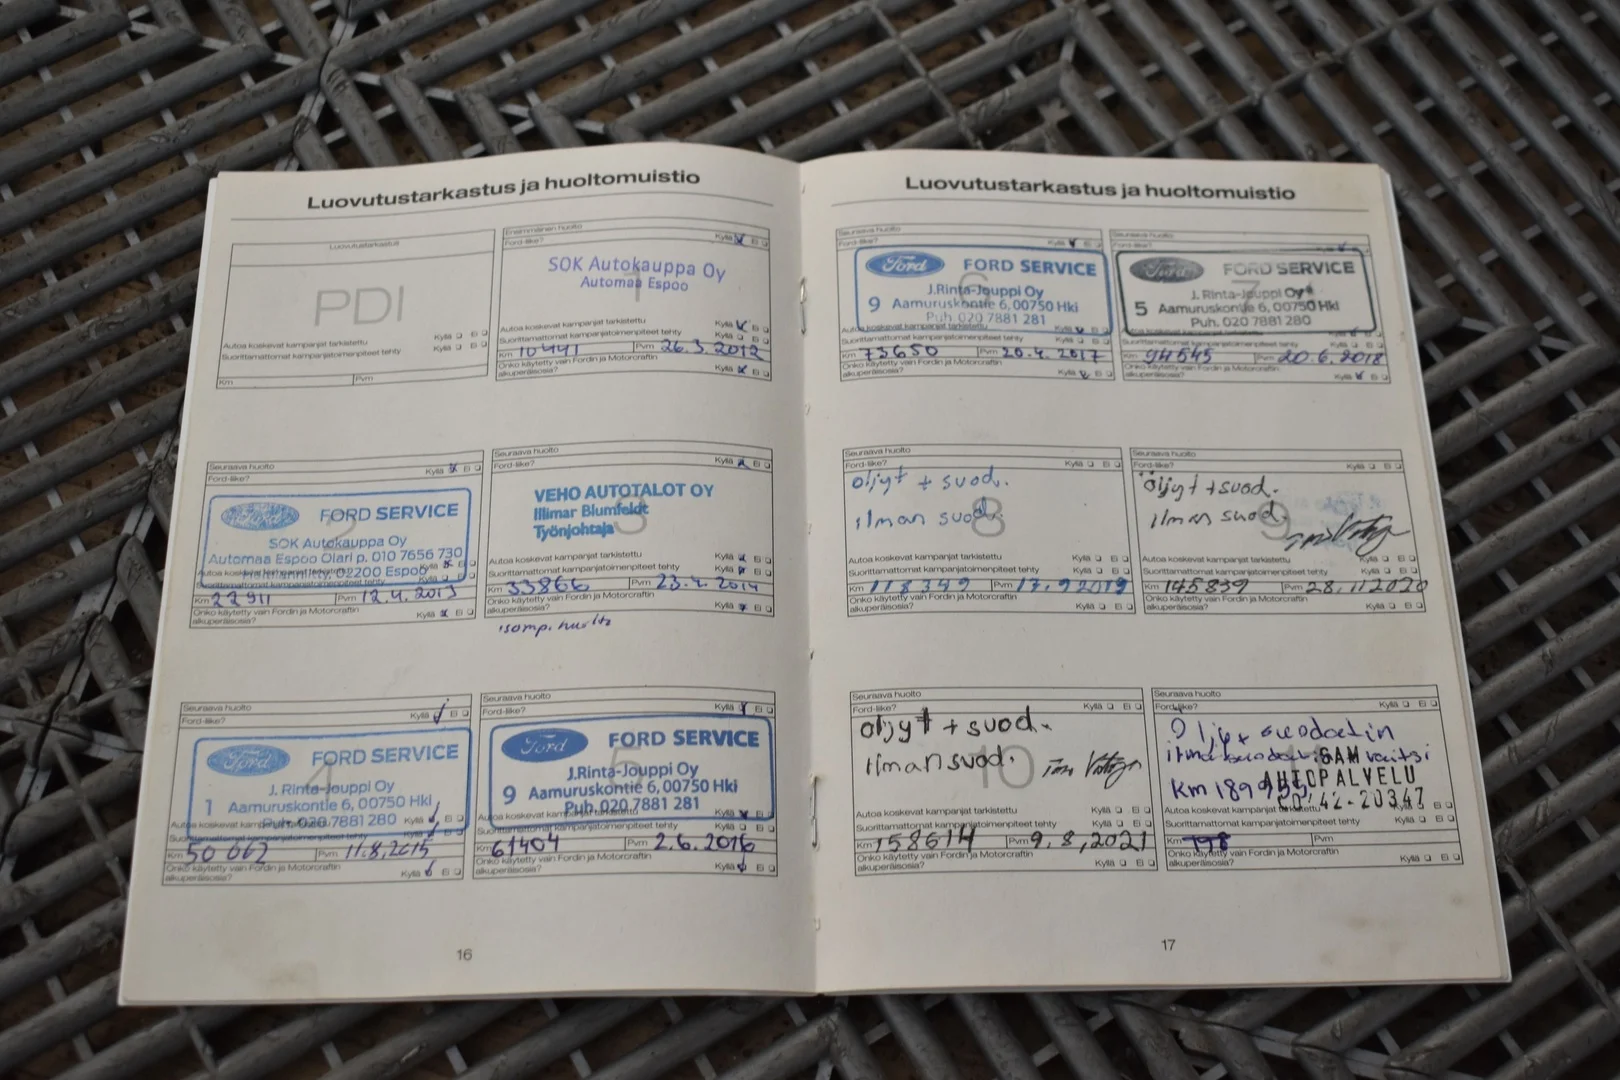 Luovutustarkastus ja huoltomuistio
Luovutustarkastus
PDI
Autoa koskevat kampanjat tarkistettu Kyllä Ei
Suorittamattomat kampanjatoimenpiteet tehty Kyllä Ei
Km Pvm
Ensimmäinen huolto
Ford-liike? Kyllä Ei
1
SOK Autokauppa Oy
Automaa Espoo
Autoa koskevat kampanjat tarkistettu Kyllä Ei
Suorittamattomat kampanjatoimenpiteet tehty
Km 10441 Pvm 26.3.2012
Onko käytetty vain Fordin ja Motorcraftin
alkuperäisosia? Kyllä Ei
Seuraava huolto
Ford-liike? Kyllä Ei
2
Ford FORD SERVICE
SOK Autokauppa Oy
Automaa Espoo Olari p. 010 7656 730
02200 Espoo
Autoa koskevat kampanjat tarkistettu Kyllä Ei
Suorittamattomat kampanjatoimenpiteet tehty Kyllä
Km 22911 Pvm 12.4.2013
Onko käytetty vain Fordin ja Motorcraftin
alkuperäisosia? Kyllä Ei
Seuraava huolto
Ford-liike? Kyllä Ei
3
VEHO AUTOTALOT OY
Illimar Blumfeldt
Työnjohtaja
Autoa koskevat kampanjat tarkistettu Kyllä Ei
Suorittamattomat kampanjatoimenpiteet tehty Kyllä Ei
Km 33866 Pvm 23.4.2014
Onko käytetty vain Fordin ja Motorcraftin
alkuperäisosia? Kyllä Ei
Seuraava huolto
Ford-liike? Kyllä Ei
4
Ford FORD SERVICE
J. Rinta-Jouppi Oy
1 Aamuruskontie 6, 00750 Hki
Puh. 020 7881 280
Autoa koskevat kampanjat tarkistettu Kyllä Ei
Suorittamattomat kampanjatoimenpiteet tehty Kyllä Ei
Km 50 662 Pvm 11.8.2015
Onko käytetty vain Fordin ja Motorcraftin
alkuperäisosia? Kyllä Ei
Seuraava huolto
Ford-liike? Kyllä Ei
5
Ford FORD SERVICE
J.Rinta-Jouppi Oy
9 Aamuruskontie 6, 00750 Hki
Puh. 020 7881 281
Autoa koskevat kampanjat tarkistettu Kyllä Ei
Suorittamattomat kampanjatoimenpiteet tehty Kyllä Ei
Km 61404 Pvm 2.6.2016
Onko käytetty vain Fordin ja Motorcraftin
alkuperäisosia? Kyllä Ei
16
Luovutustarkastus ja huoltomuistio
Seuraava huolto
Ford-liike? Kyllä Ei
6
Ford FORD SERVICE
J.Rinta-Jouppi Oy
9 Aamuruskontie 6, 00750 Hki
Puh. 020 7881 281
Autoa koskevat kampanjat tarkistettu
Suorittamattomat kampanjatoimenpiteet tehty Kyllä Ei
Km 73650 Pvm 20.4.2017
Onko käytetty vain Fordin ja Motorcraftin
alkuperäisosia? Kyllä Ei
Seuraava huolto
Ford-liike?
7
Ford FORD SERVICE
J. Rinta-Jouppi Oy
5 Aamuruskontie 6, 00750 Hki
Puh. 020 7881 280
Autoa koskevat kampanjat tarkistettu
Suorittamattomat kampanjatoimenpiteet tehty Kyllä Ei
Km 94545 Pvm 20.6.2018
Onko käytetty vain Fordin ja Motorcraftin
alkuperäisosia? Kyllä Ei
Seuraava huolto
Ford-liike? Kyllä Ei
8
öljyt + suod.
ilman suod.
Autoa koskevat kampanjat tarkistettu Kyllä Ei
Suorittamattomat kampanjatoimenpiteet tehty Kyllä Ei
Km 118349 Pvm 17.9.2019
Onko käytetty vain Fordin ja Motorcraftin
alkuperäisosia? Kyllä Ei
Seuraava huolto
Ford-liike? Kyllä Ei
9
öljyt + suod.
ilman suod.
Autoa koskevat kampanjat tarkistettu Kyllä Ei
Suorittamattomat kampanjatoimenpiteet tehty Kyllä Ei
Km 145839 Pvm 28.11.2020
Onko käytetty vain Fordin ja Motorcraftin
alkuperäisosia? Kyllä Ei
Seuraava huolto
Ford-liike? Kyllä Ei
10
öljyt + suod.
ilman suod.
Autoa koskevat kampanjat tarkistettu Kyllä Ei
Suorittamattomat kampanjatoimenpiteet tehty Kyllä Ei
Km 158614 Pvm 9.8.2021
Onko käytetty vain Fordin ja Motorcraftin
alkuperäisosia? Kyllä Ei
Seuraava huolto
Ford-liike? Kyllä Ei
Öljy + suodatin
GAM
Km
AUTOPALVELU
42-20347
Autoa koskevat kampanjat tarkistettu Kyllä Ei
Suorittamattomat kampanjatoimenpiteet tehty Kyllä Ei
Km Pvm
Onko käytetty vain Fordin ja Motorcraftin
alkuperäisosia? Kyllä Ei
17